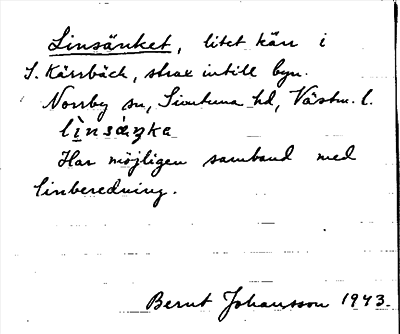 Linsänket, litet kärr i
S. Kärrbäck, strax intill byn.
Norrby sn, Simtuna hd, Västm. l.
lìnsáŋka
Har möjligen samband med
linberedning.
Bernt Johansson 1943.